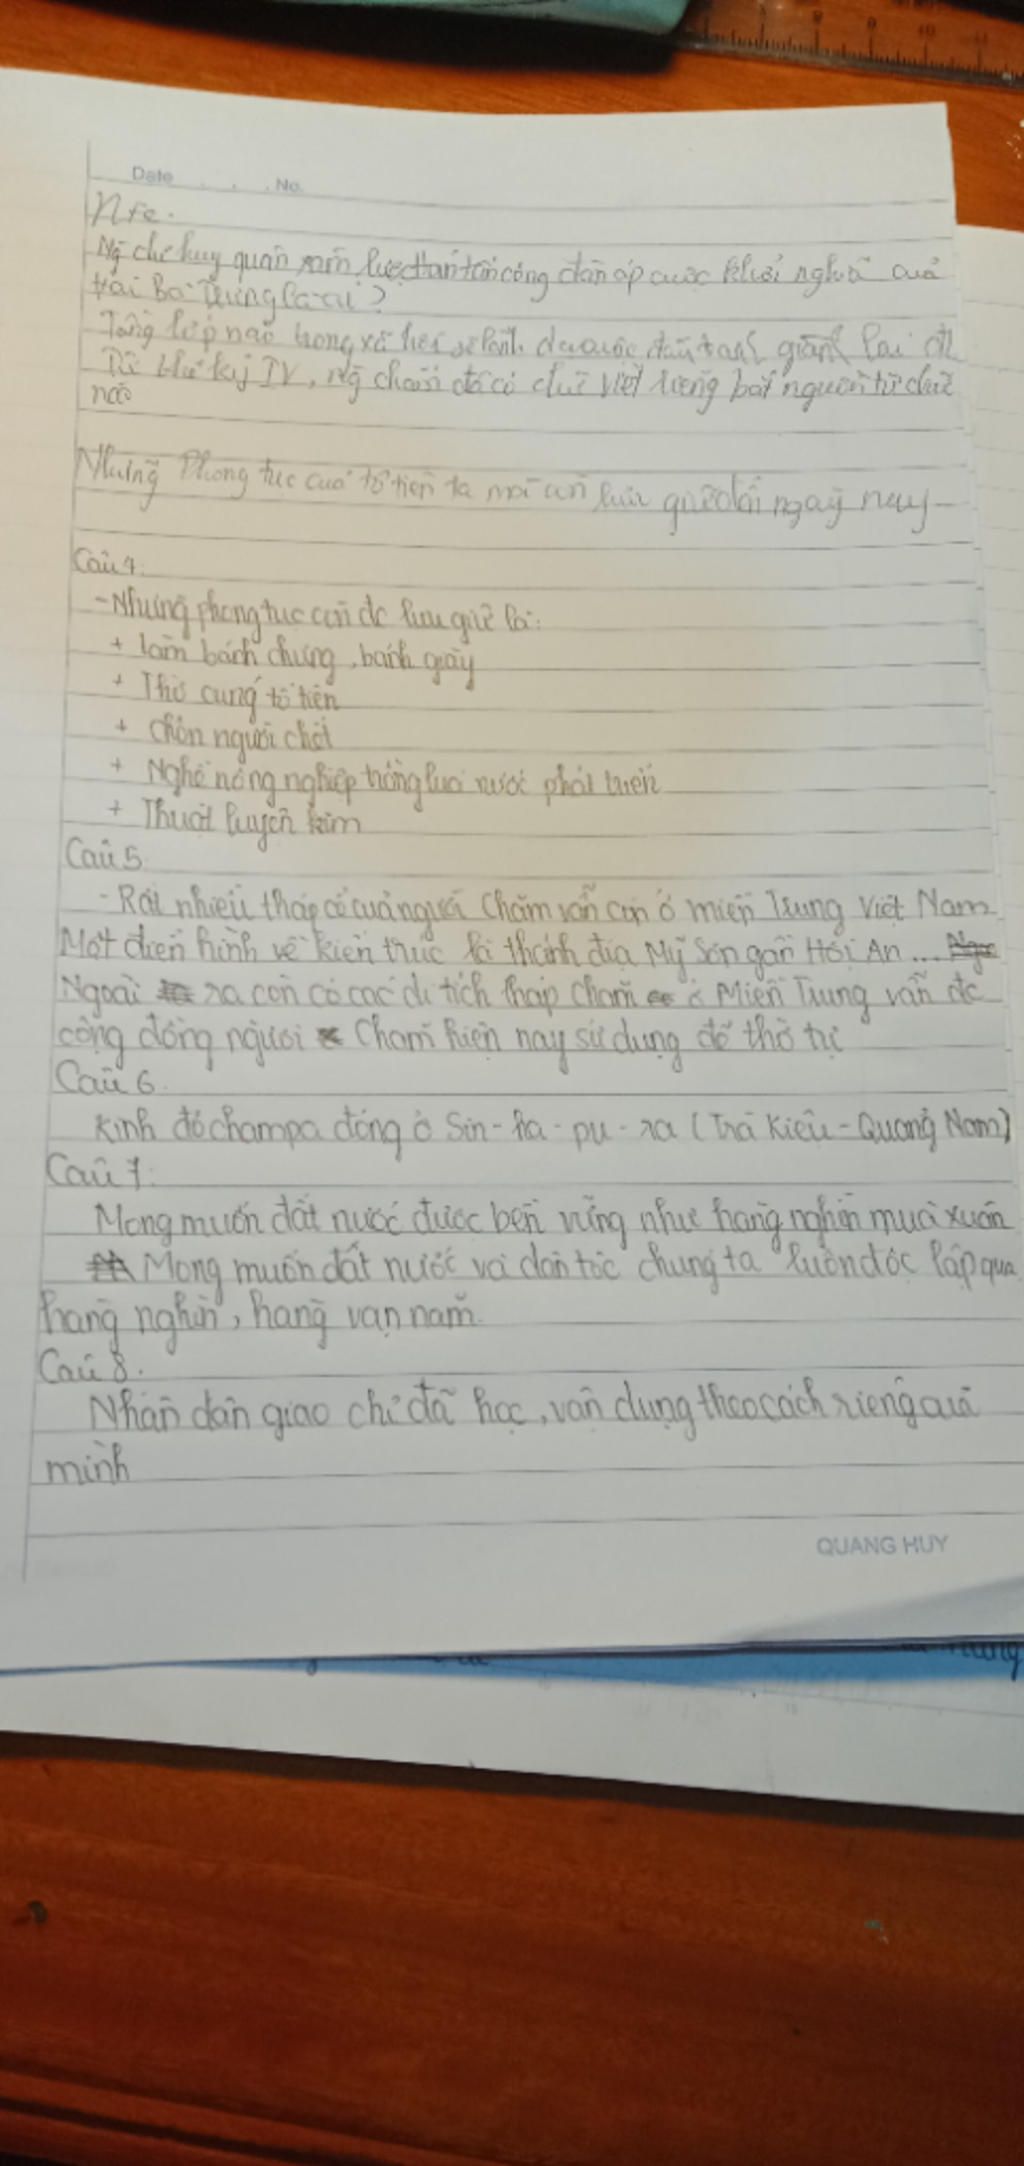 Date . . . No.
Ng chỉ huy quân xâm lược Hán tấn công đàn áp cuộc khởi nghĩa của
Hai Bà Trưng là ai?
Tầng lớp nào trong xã hội sẽ lãnh đạo cuộc đấu tranh giành lại
Từ thế kỷ IV, ng chăm đã có chữ viết riêng bắt nguồn từ chữ
nào
Những Phong tục của tổ tiên ta mà còn lưu giữ tới ngày nay
Câu 4:
- Những phong tục còn đc lưu giữ là:
+ làm bánh chưng, bánh giày
+ Thờ cúng tổ tiên
+ chôn người chết
+ Nghề nông nghiệp trồng lúa nước phát triển
+ Thuật luyện kim
Câu 5:
- Rất nhiều tháp cổ của người Chăm vẫn còn ở miền Trung Việt Nam
Một điển hình về kiến trúc là thánh địa Mỹ Sơn gần Hội An...
Ngoài ra còn có các di tích tháp Chăm ở Miền Trung vẫn đc
cộng đồng người Chăm hiện nay sử dụng để thờ tự
Câu 6.
Kinh đô champa đóng ở Sin-ha-pu-ra (Trà Kiệu - Quảng Nam)
Câu 7:
Mong muốn đất nước được bền vững như hàng nghìn mùa xuân
Mong muốn đất nước và dân tộc chúng ta luôn độc lập qua
hàng nghìn, hàng vạn năm.
Câu 8.
Nhân dân giao chỉ đã học, vận dụng theo cách riêng của
mình
QUANG HUY